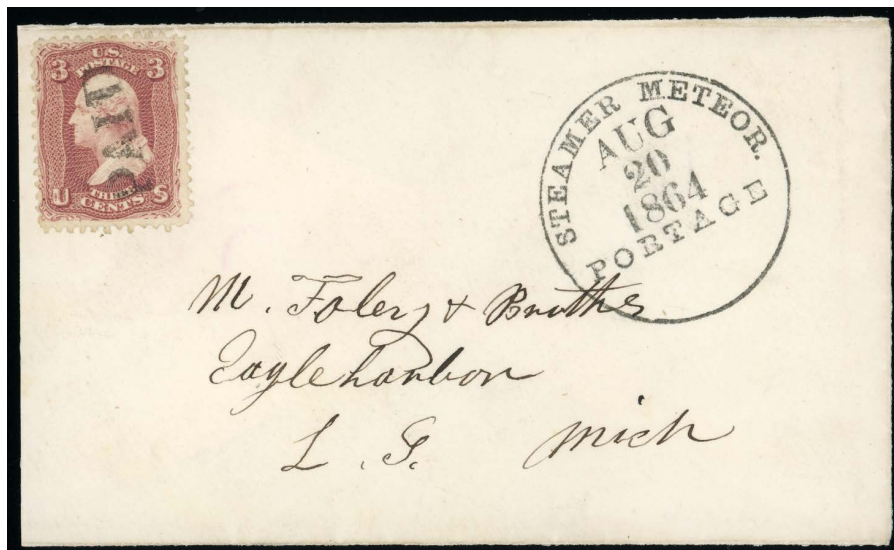 U.S.
POSTAGE
3 3
PAID
U S
THREE
CENTS
STEAMER METEOR.
AUG
20
1864
PORTAGE
M. Foley & Brothers
Eagleharbor
L. S. Mich